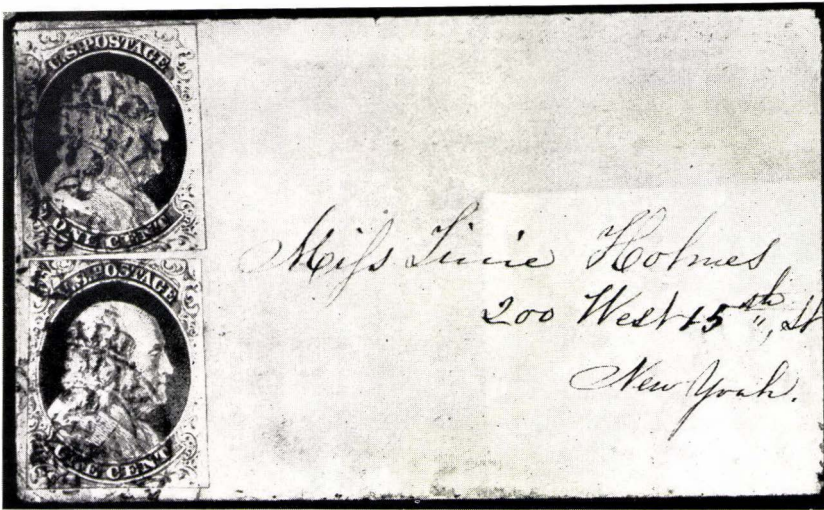 U.S. POSTAGE
ONE CENT
U.S. POSTAGE
ONE CENT
Miss Linie Holmes
200 West 15th, St
New York.